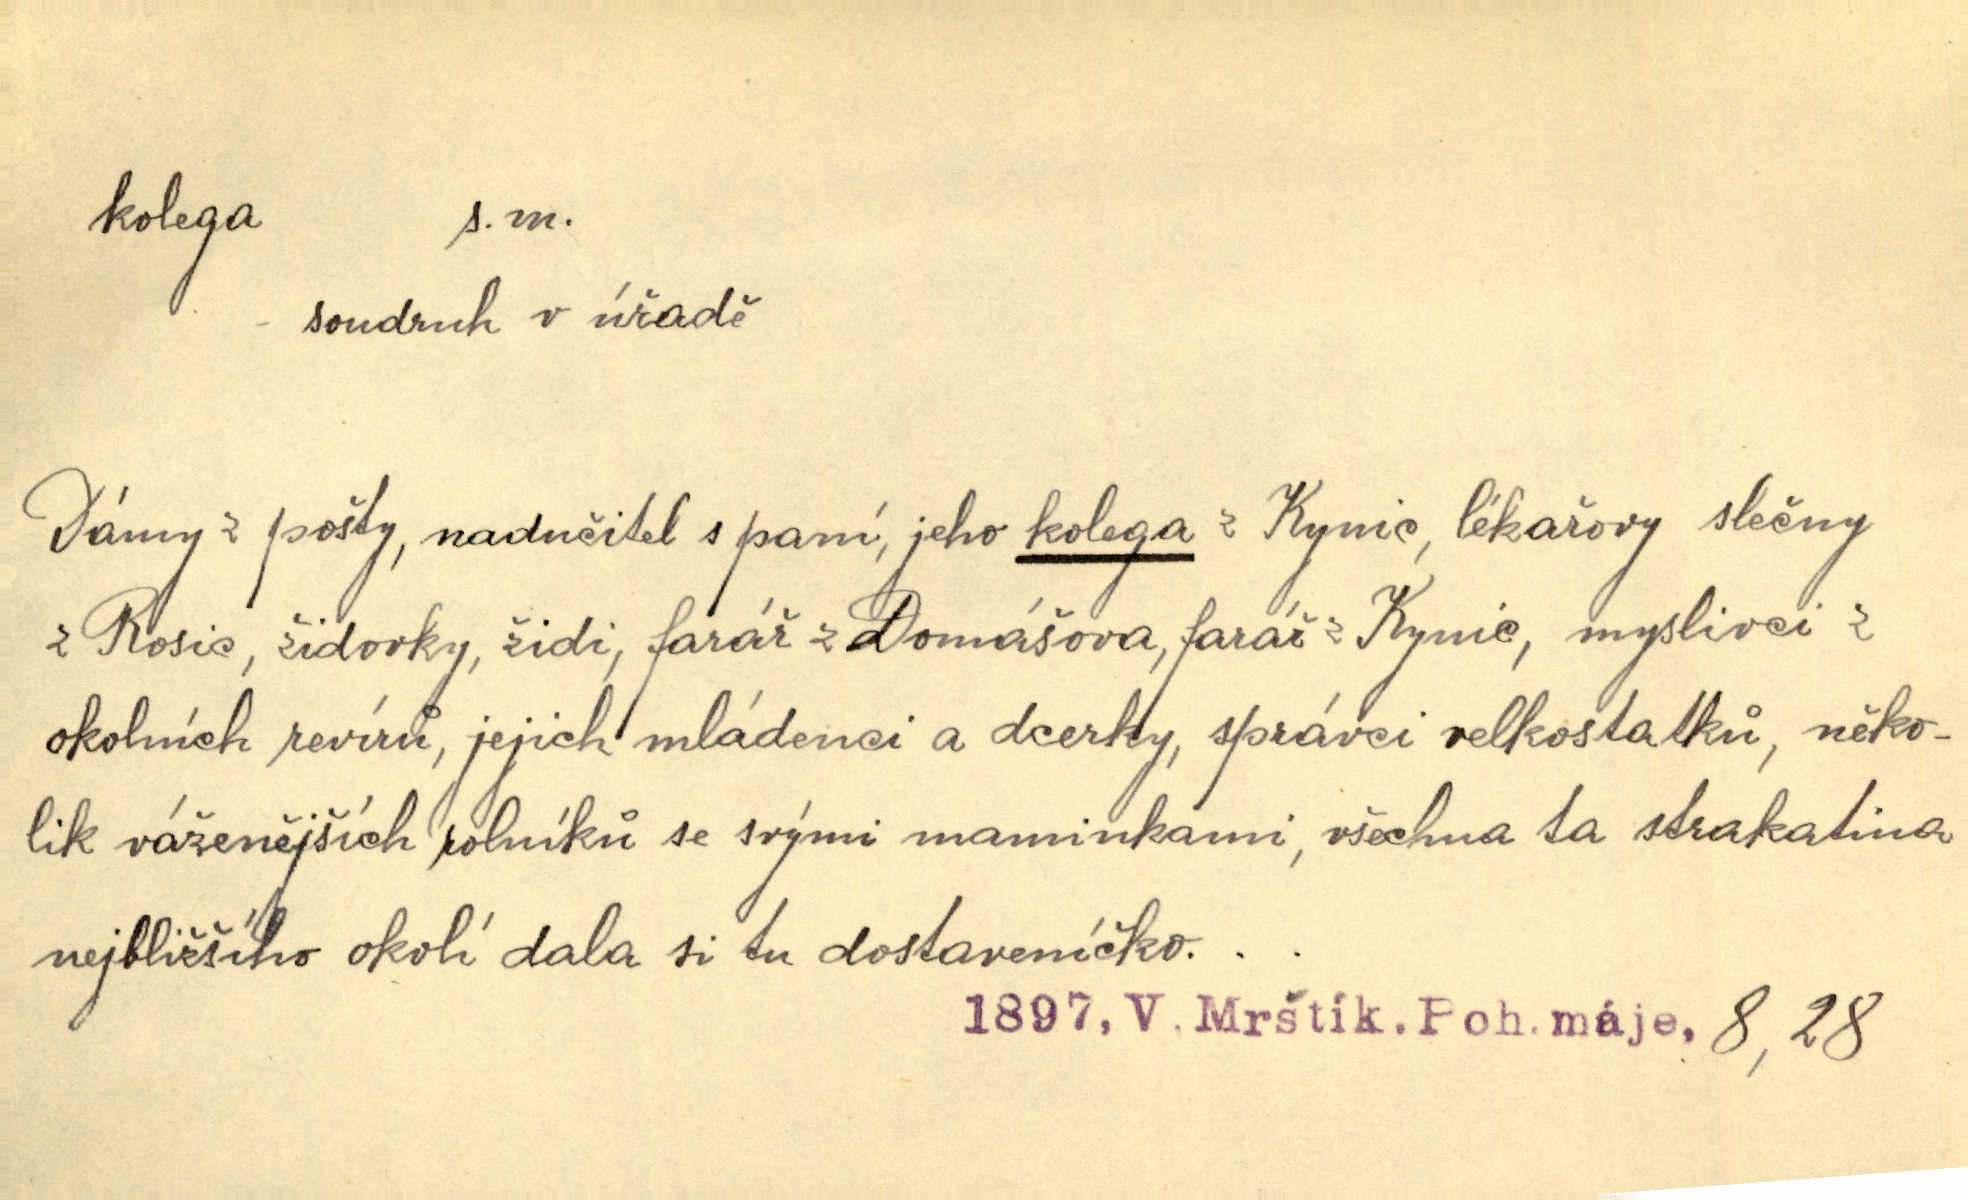 kolega s. m.
soudruh v úřadě
Dámy z pošty, nadučitel s paní, jeho kolega z Kynic, lékařovy slečny
z Rosic, židovky, židi, farář z Domášova, farář z Kynic, myslivci z
okolních revírů, jejich mládenci a dcerky, správci velkostatků, něko-
lik váženějších rolníků se svými maminkami, všechna ta strakatina
nejbližšího okolí dala si tu dostaveníčko. . .
1897, V. Mrštík. Poh. máje, 8, 28